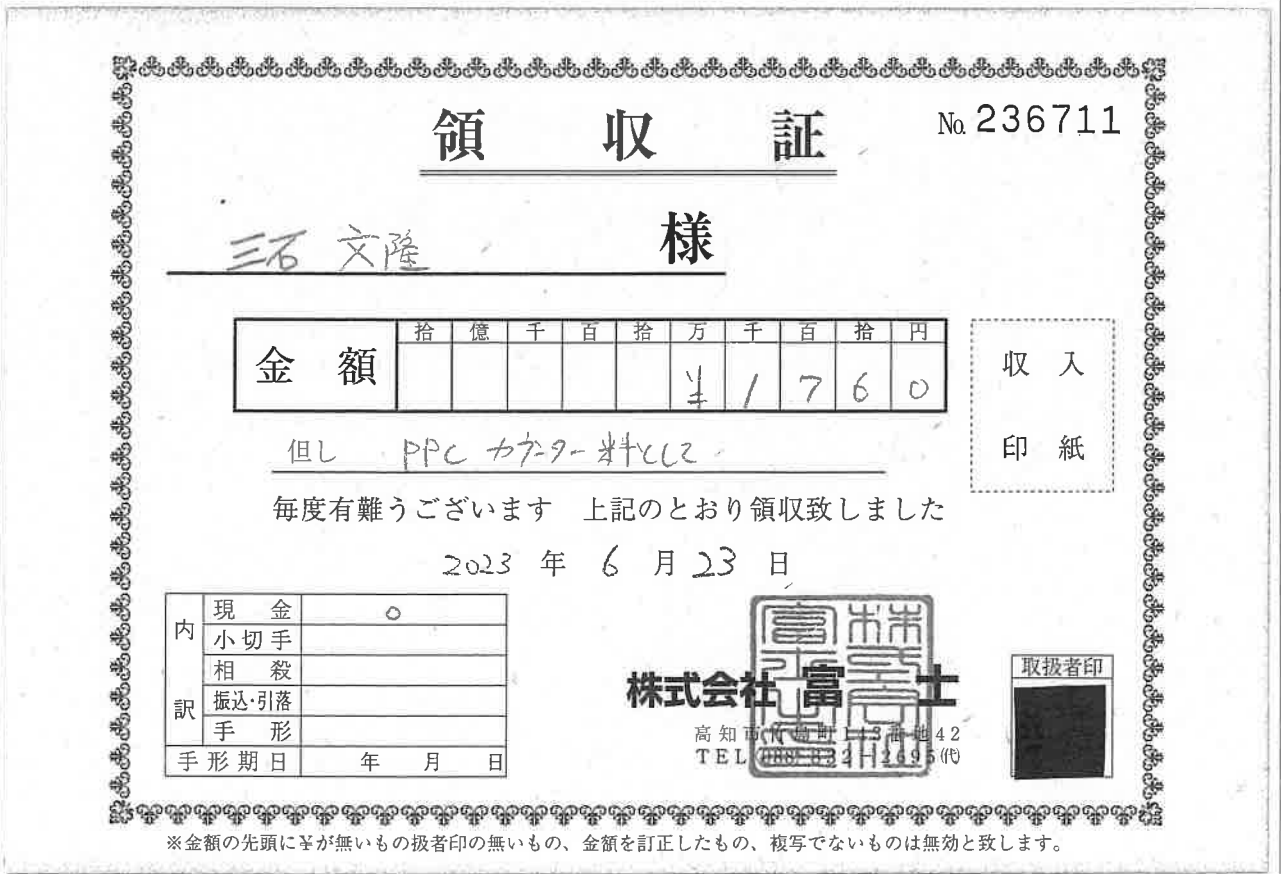 領収証
No. 236711
三石 文隆 様
拾 億 千 百 拾 万 千 百 拾 円
金額 ¥1760
収入
印紙
但し PPC カウンター料として
毎度有難うございます 上記のとおり領収致しました
2023 年 6 月 23 日
内訳
現金 ○
小切手
相殺
振込・引落
手形
手形期日 年 月 日
株式会社 富士
高知市竹島町143番地42
TEL 088-832-2695㈹
取扱者印
※金額の先頭に¥が無いもの扱者印の無いもの、金額を訂正したもの、複写でないものは無効と致します。